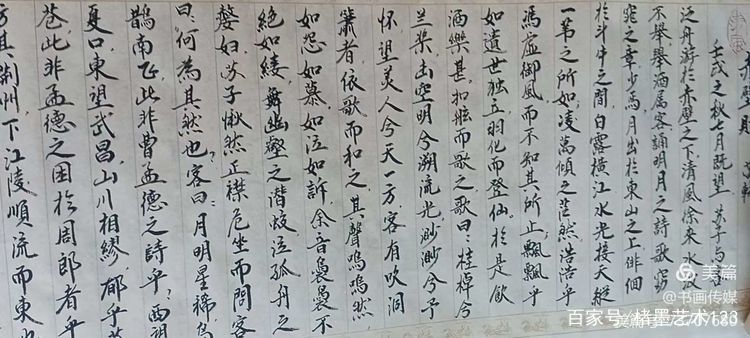 赤壁賦
壬戌之秋七月既望苏子与客
泛舟游於赤壁之下清風徐来水波
不興舉酒属客誦明月之詩歌窈
窕之章少焉月出於東山之上徘徊
於斗牛之間白露横江水光接天縱
一葦之所如凌萬傾之茫然浩浩乎
馮虚御風而不知其所止飄飄乎
如遺世独立羽化而登仙於是飲
酒樂甚扣舷而歌之歌曰桂棹兮
兰槳击空明兮溯流光渺渺兮予
怀望美人兮天一方客有吹洞
簫者依歌而和之其聲嗚嗚然
如怨如慕如泣如訴余音裊裊不
絶如縷舞幽壑之潜蛟泣孤舟之
嫠妇苏子愀然正襟危坐而問客
曰何為其然也客曰月明星稀烏
鵲南飞此非曹孟德之詩乎西望
夏口東望武昌山川相繆郁乎蒼
苍此非孟德之困於周郎者乎
方其荆州下江陵順流而東也
美篇
@书画传媒
百家号/格墨艺术123